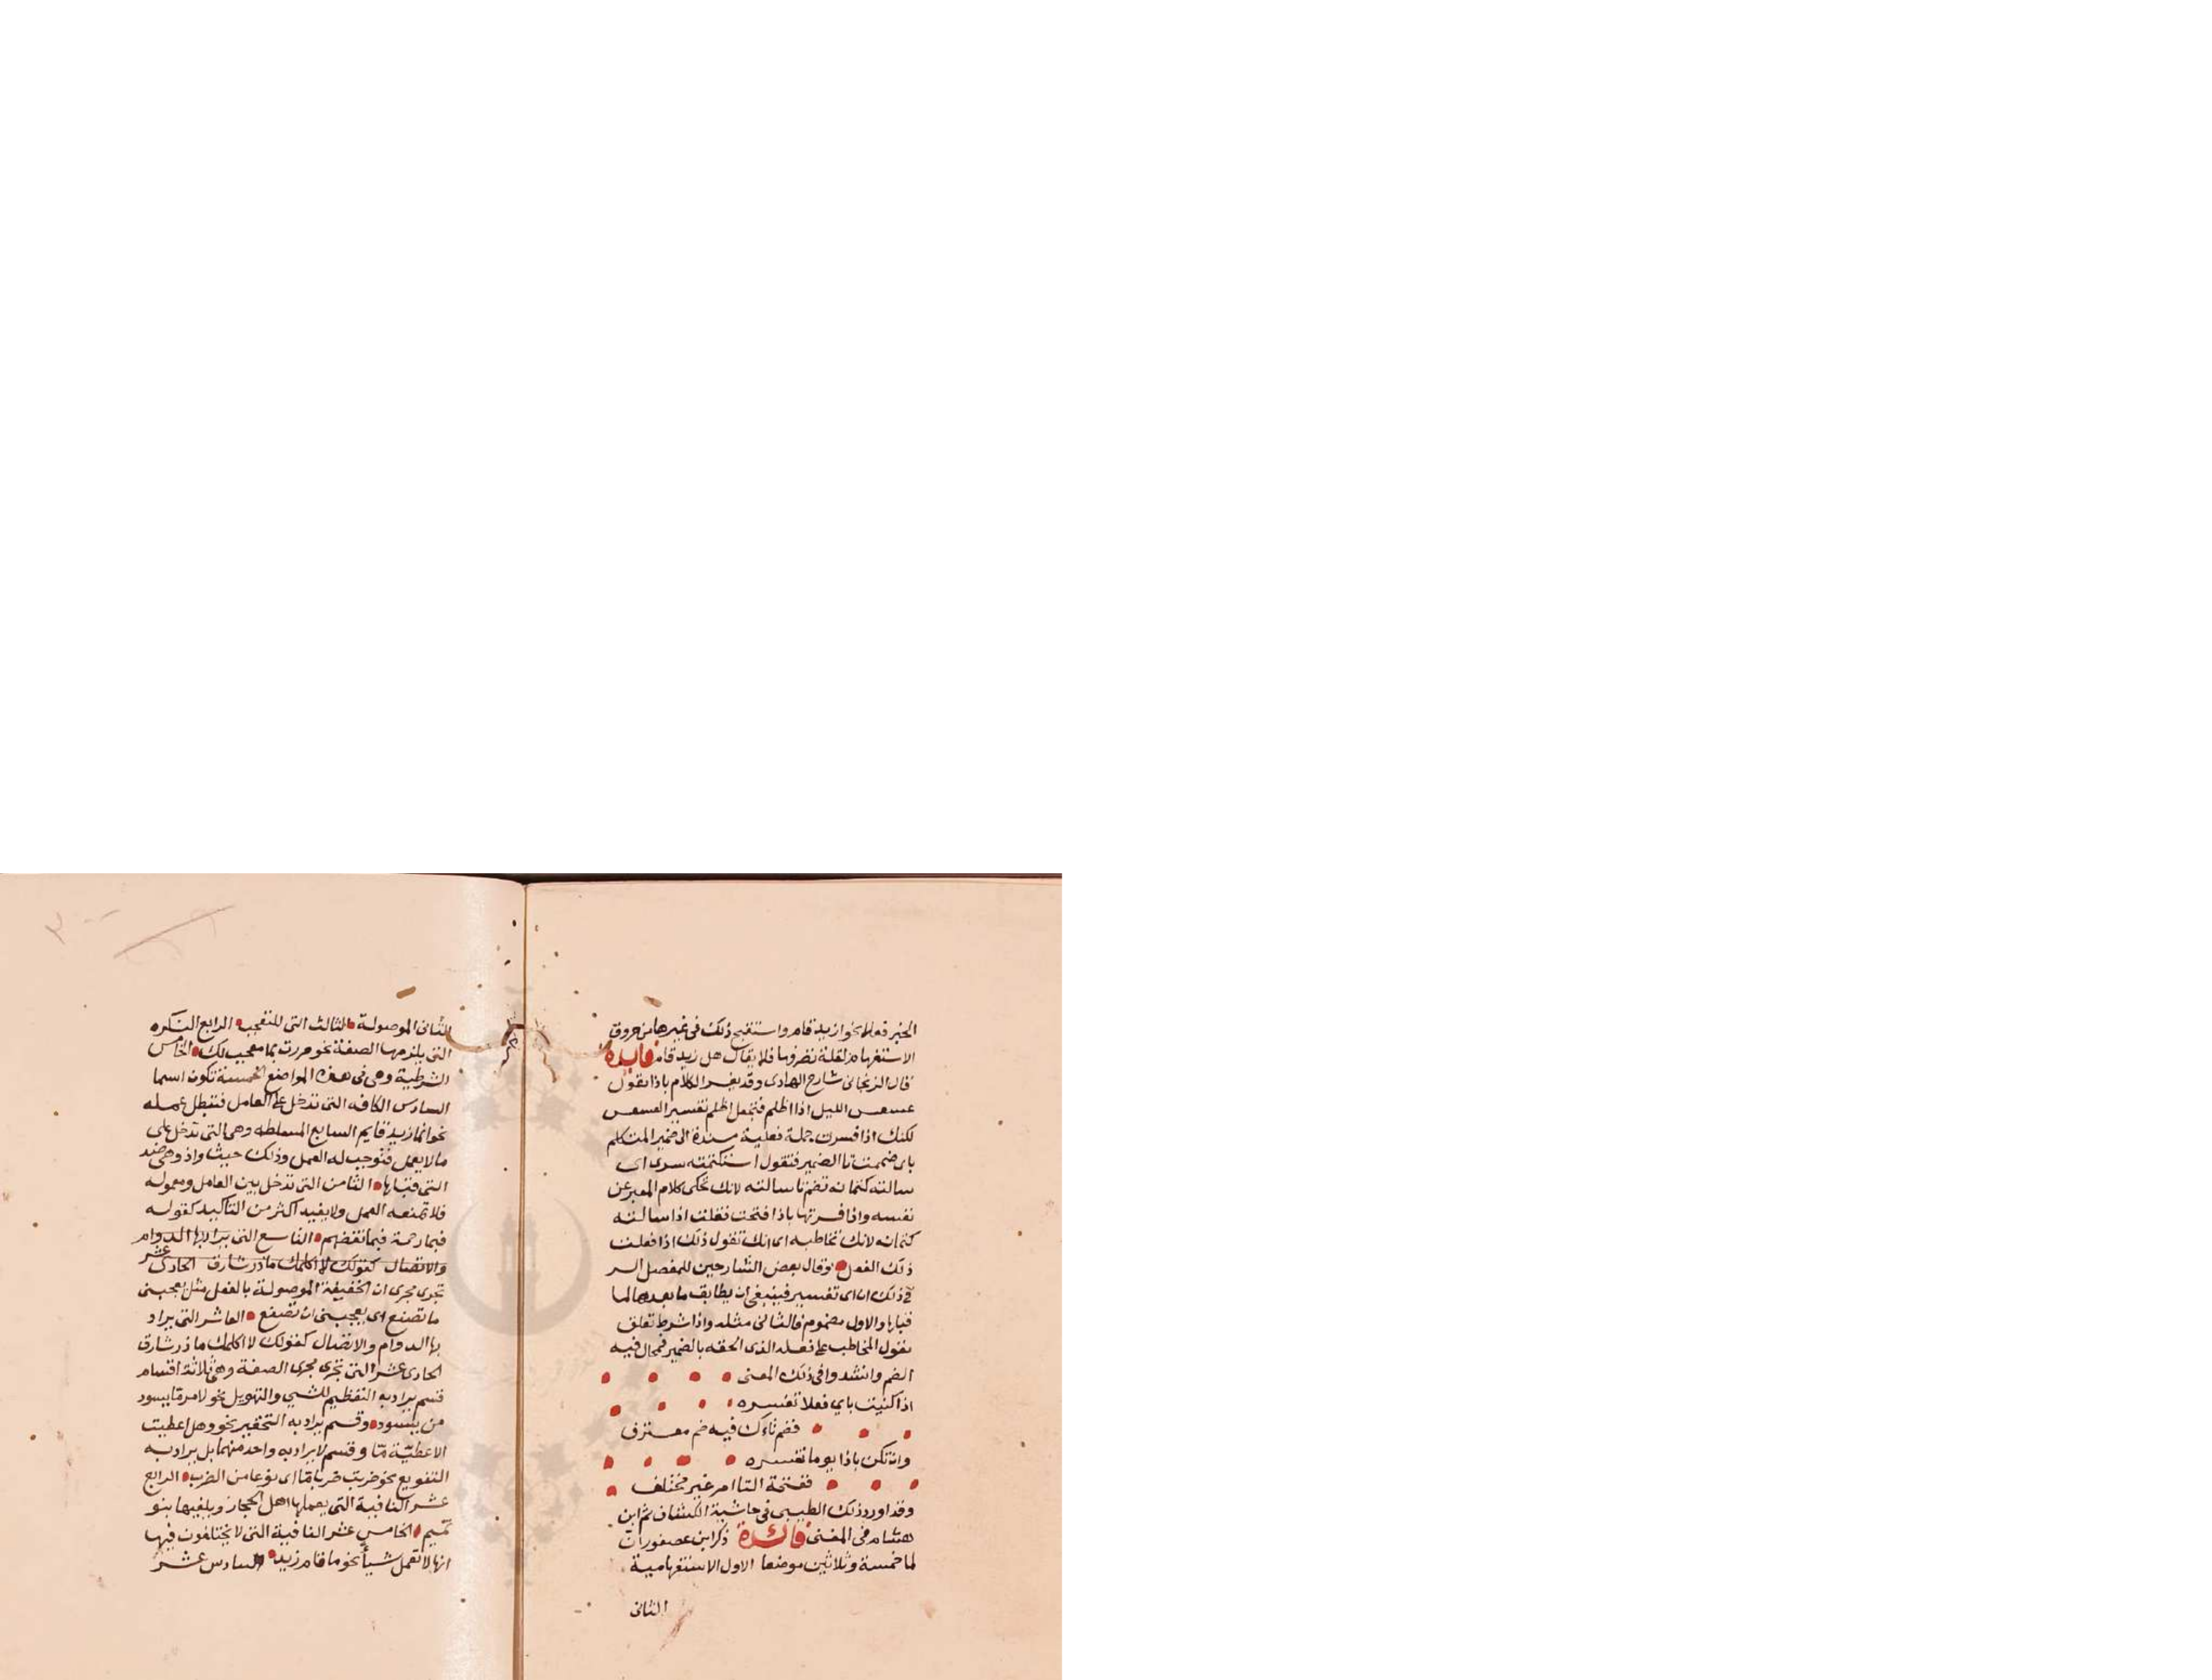 الخبر فعلا نحو ازيد قام واستقبح ذلك في غيرها من حروف
الاستفهام لقلة تصرفها فلا يقال هل زيد قام فايدة
قال الزنجاني شارح الهادي وقد يفسر الكلام باذا تقول
عسعس الليل اذا اظلم فتجعل اظلم تفسير العسعس
لكنك اذا فسرت جملة فعلية مسندة الى ضمير المتكلم
باي ضممت تا الضمير فتقول استكتمته سري اي
سالته كتمانه تضم تا سالته لانك تحكي كلام المعبر عن
نفسه واذا فسرتها باذا فتحت فقلت اذا سالته
كتمانه لانك تخاطبه اي انك تقول ذلك اذا فعلت
ذلك الفعل وقال بعض الشارحين للمفصل السر
في ذلك ان اي تفسير فينبغي ان يطابق ما بعدها لما
قبلها والاول مضموم فالثاني مثله واذا شرط تعلق
بقول المخاطب على فعله الذي الحقه بالضمير فمحال فيه
الضم وانشدوا في ذلك المعنى
اذا كنيت باي فعلا تفسره
فضم تاءك فيه ضم معترف
وان تكن باذا يوما تفسره
ففتحة التا امر غير مختلف
وقد اورد ذلك الطيبي في حاشية الكشاف ثم ابن
هشام في المغني فائدة ذكر ابن عصفور ان
لما خمسة وثلاثين موضعا الاول الاستفهامية
الثاني
الثاني الموصولة الثالث التي للتعجب الرابع النكره
التي يلزمها الصفة نحو مررت بما معجب لك الخامس
الشرطية وهي في هذه المواضع الخمسة تكون اسما
السادس الكافه التي تدخل على العامل فتبطل عمله
نحو انما زيد قايم السابع المسلطه وهي التي تدخل على
ما لا يعمل فتوجب له العمل وذلك حيث واذ وهي ضد
التي قبلها الثامن التي تدخل بين العامل ومعموله
فلا تمنعه العمل ولا يفيد اكثر من التاكيد كقوله
فبما رحمة فبما نقضهم التاسع التي يراد بها الدوام
والاتصال كقولك لا اكلمك ما ذر شارق الحادي عشر
تجري مجرى ان الخفيفة الموصولة بالفعل مثل يعجبني
ما تصنع اي يعجبني ان تصنع العاشر التي يراد
بها الدوام والاتصال كقولك لا اكلمك ما ذر شارق
الحادي عشر التي تجري مجرى الصفة وهي ثلاثة اقسام
قسم يراد به التعظيم للشي والتهويل نحو لامر ما يسود
من يسود وقسم يراد به التحقير نحو وهل اعطيت
الا عطية ما وقسم لا يراد به واحد منهما بل يراد به
التنويع نحو ضربت ضربا ما اي نوعا من الضرب الرابع
عشر النافية التي يعملها اهل الحجاز ويلغيها بنو
تميم الخامس عشر النافية التي لا يختلفون فيها
انها لا تعمل شيأ نحو ما قام زيد السادس عشر